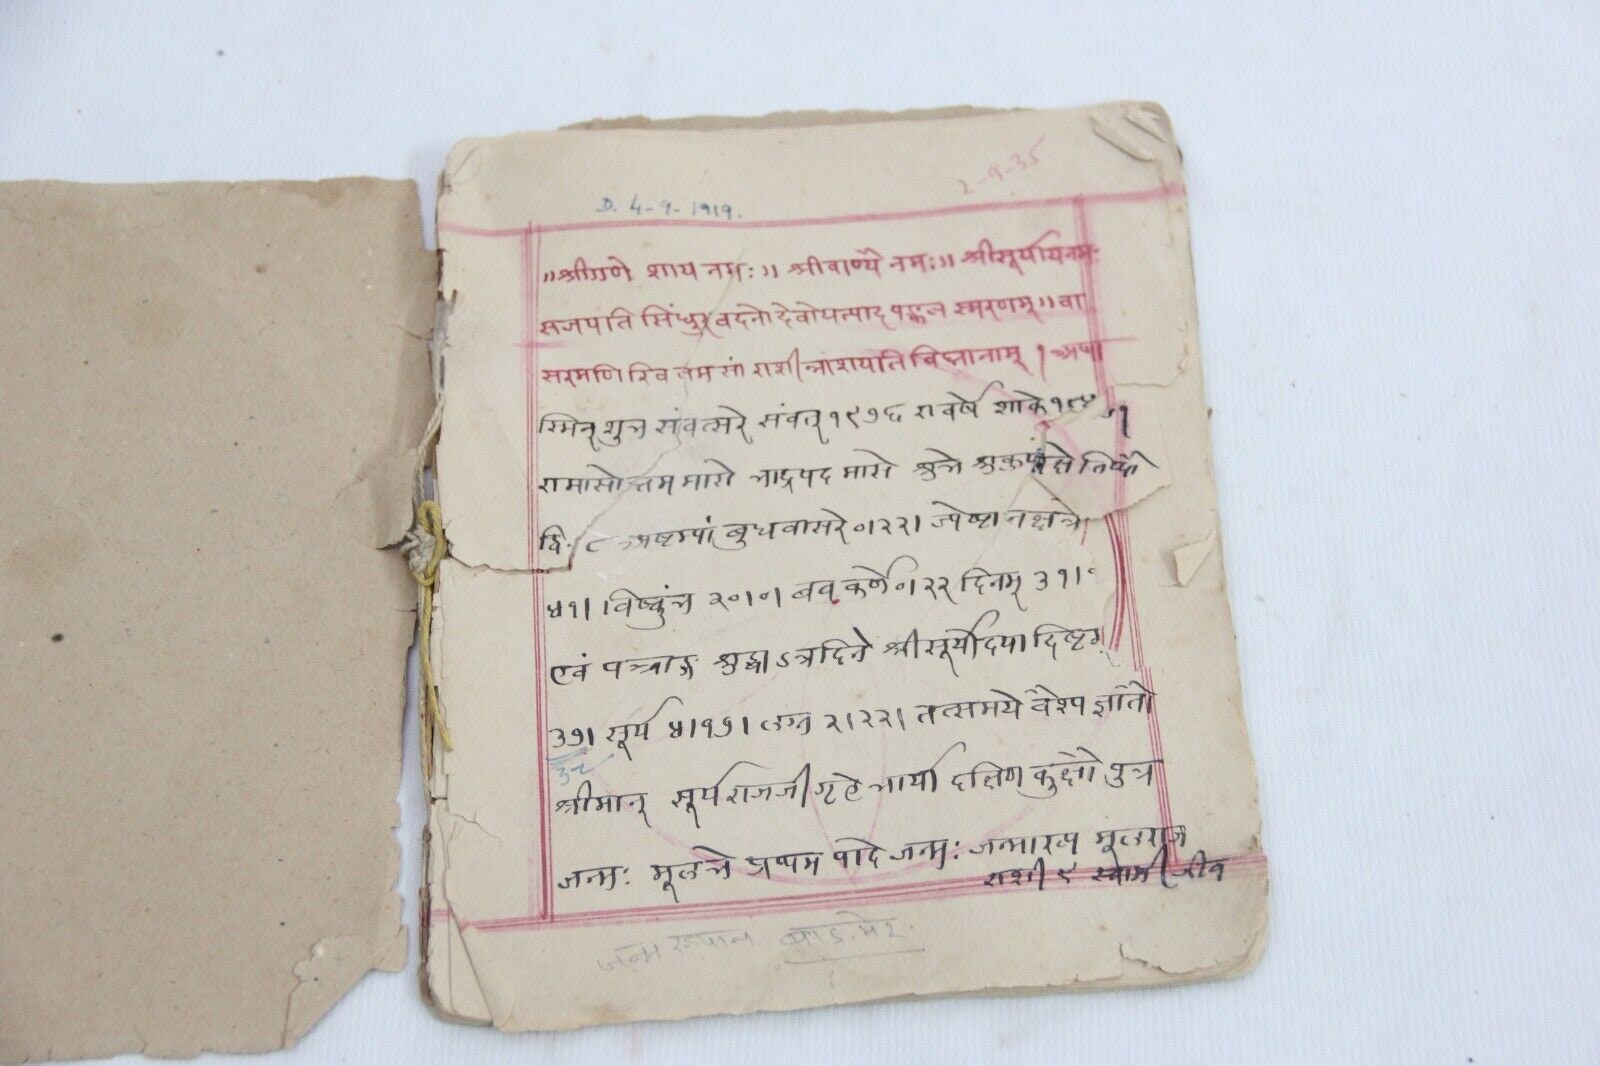 2-9-35
D. 4-9-1919.
॥श्रीगणे शाय नमः॥ श्रीवाण्यै नमः॥ श्रीसूर्यायनमः
सजयति सिंधुर वदनो देवोयत्पाद पङ्कज स्मरणम्॥ वा
सरमणि रिव तमसां राशीन्नाशयति विघ्नानाम्। अथा
स्मिन् शुभ संवत्सरे संवत् १९७६ रा वर्षे शाके
रा मासोत्तम मासे भाद्रपद मासे शुभे शुक्लपक्षे तिथौ
अष्टम्यां बुधवासरे ०।२२। ज्येष्ठा नक्षत्रे
५१। विष्कुंभ २०।०। बव कर्णे ०।२२ दिनम् ३१।०
एवं पञ्चाङ्ग शुद्धाऽत्रदिने श्रीसूर्योदया दिष्टम्
३७। सूर्य ५।१७। लग्न २।२२। तत्समये वैश्य ज्ञातौ
श्रीमान् सूर्यराजजी गृहे भार्या दक्षिण कुक्षौ पुत्र
जन्मः मूलभे प्रथम पादे जन्मः जन्माख्य मूलराज
राशी ९ स्वामी जीव
जन्म स्थान बाडमेर.